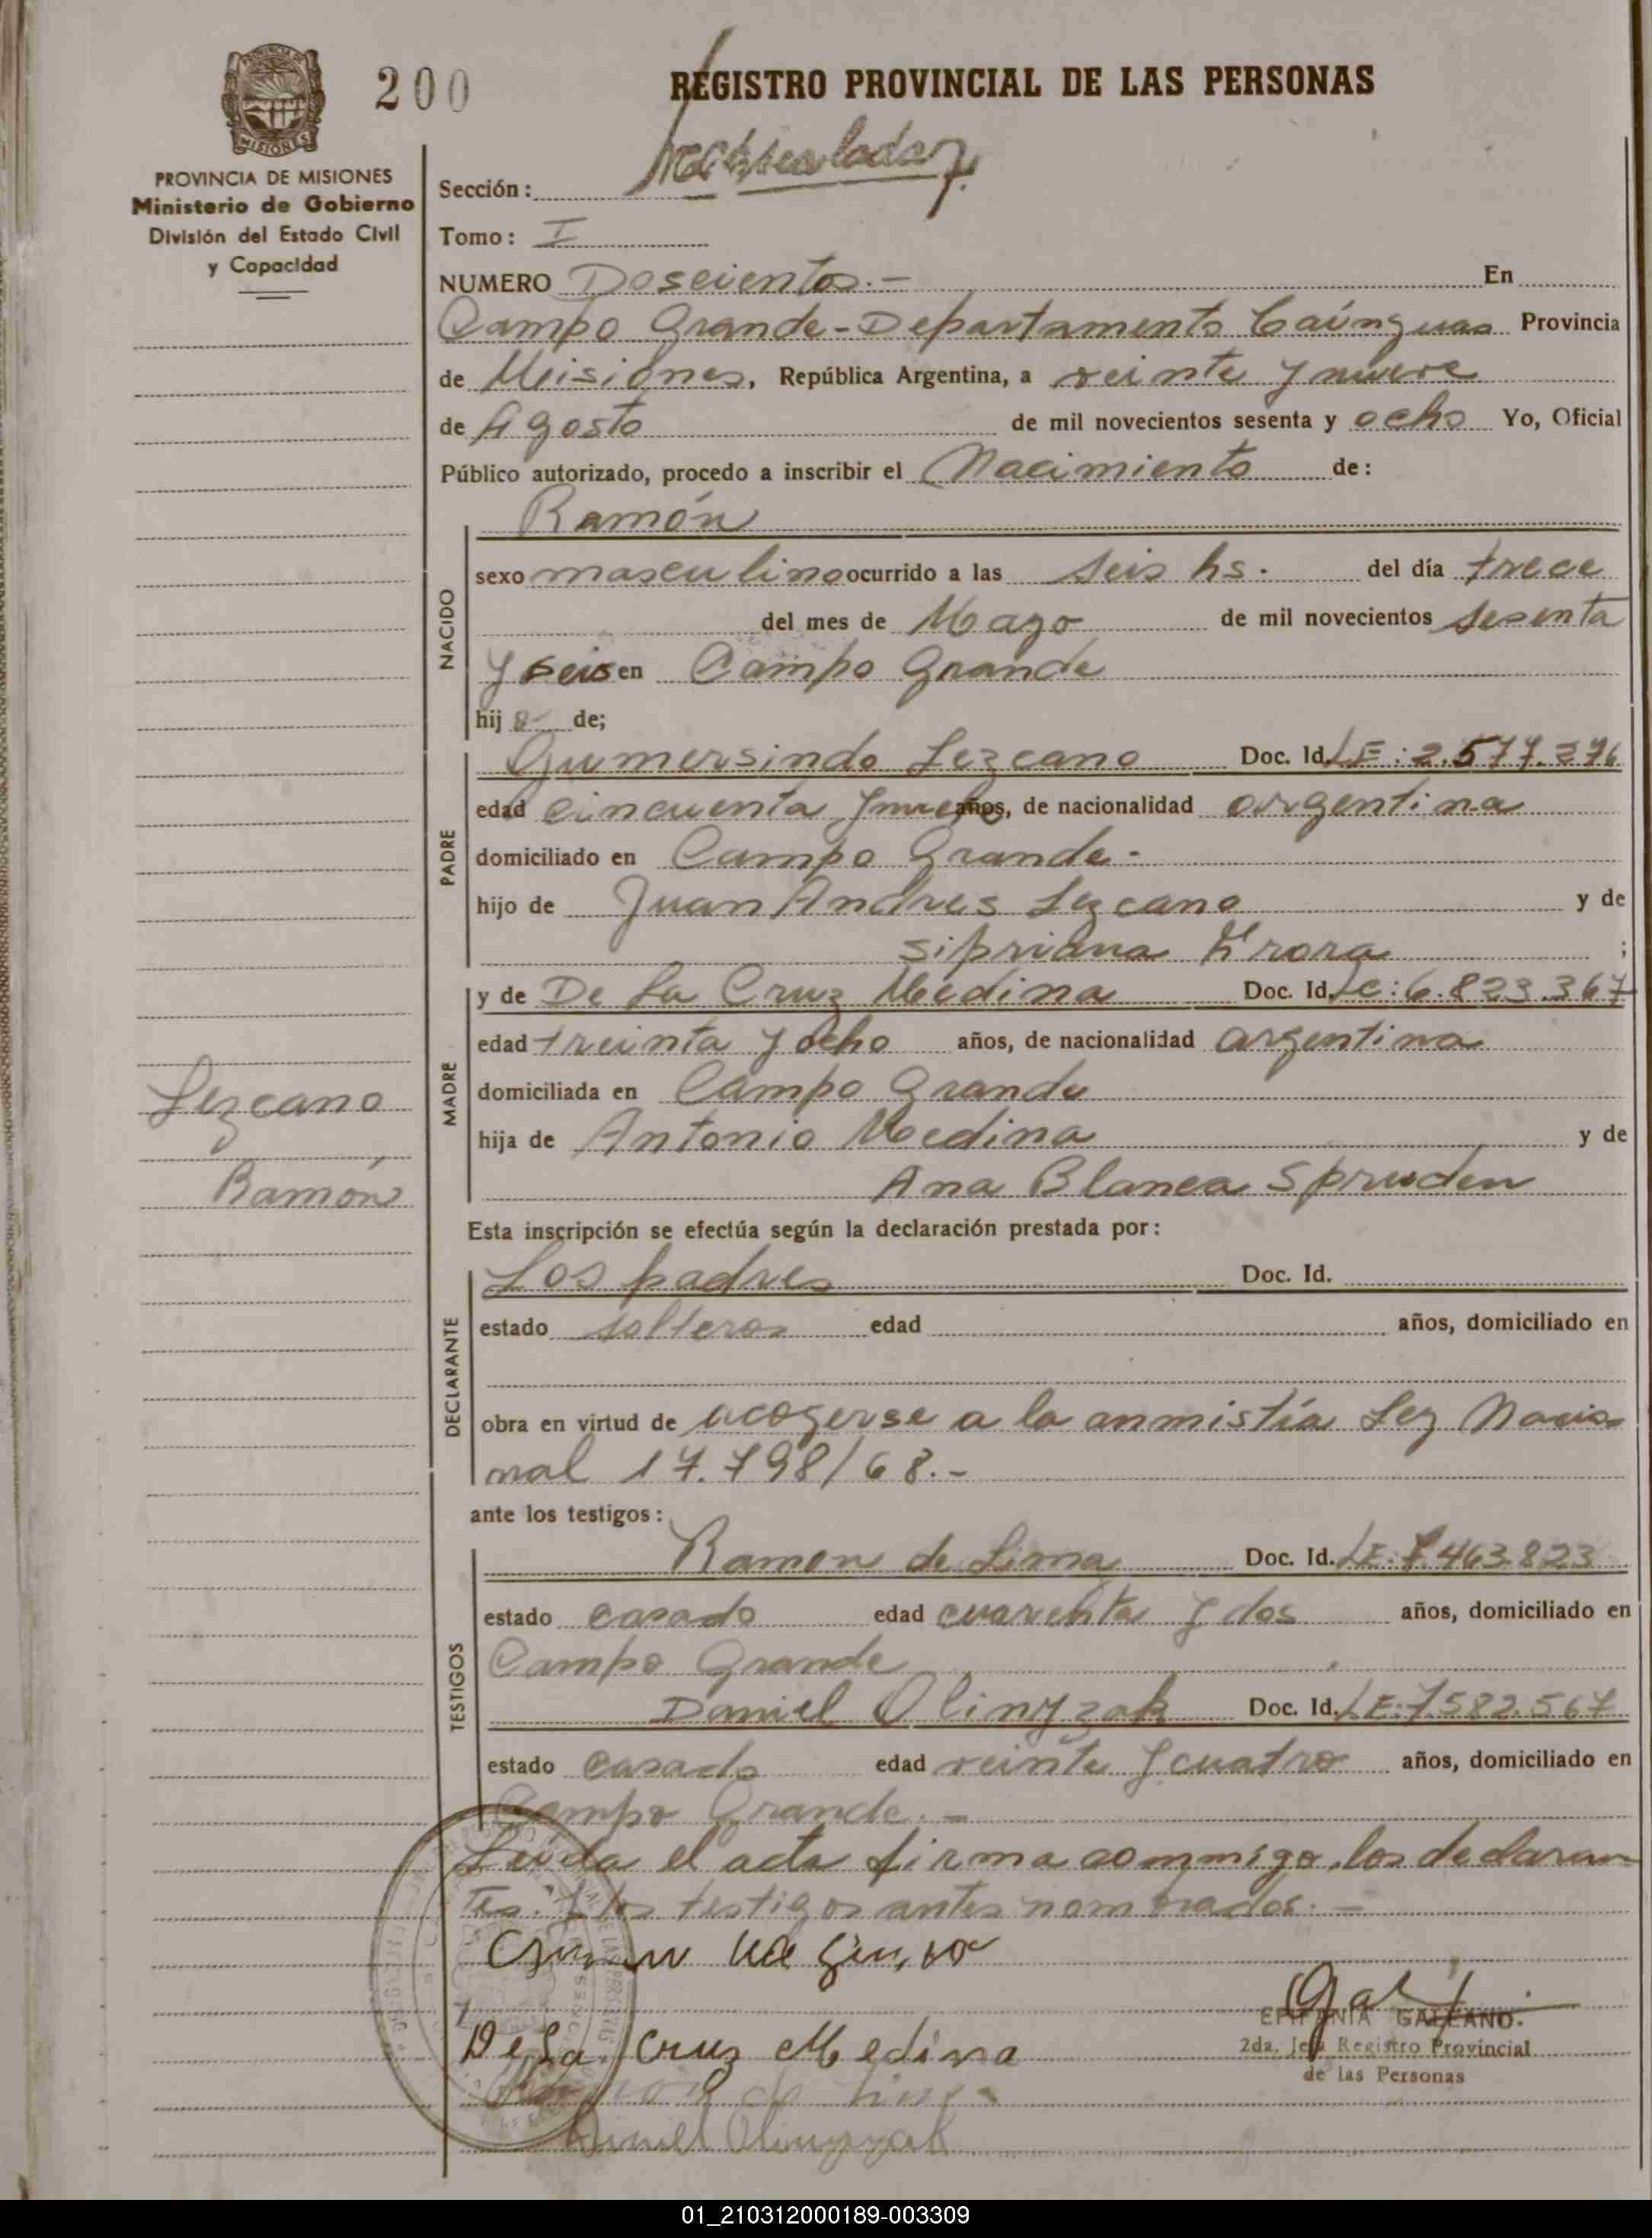 200
REGISTRO PROVINCIAL DE LAS PERSONAS
PROVINCIA DE MISIONES
Ministerio de Gobierno
División del Estado Civil
y Capacidad
Sección:
Tomo: I
NUMERO Doscientos.- En
Campo Grande-Departamento Caínguas Provincia
de Misiones, República Argentina, a veinte y nueve
de Agosto de mil novecientos sesenta y ocho Yo, Oficial
Público autorizado, procedo a inscribir el Nacimiento de:
Ramón
NACIDO
sexo masculino ocurrido a las seis hs. del día trece
del mes de Mayo de mil novecientos sesenta
y seis en Campo Grande
hijo de;
PADRE
Gumersindo Lezcano Doc. Id. LE: 2.577.376
edad cincuenta y nueve años, de nacionalidad argentina
domiciliado en Campo Grande-
hijo de Juan Andres Lezcano y de
Sipriana ;
MADRE
y de De La Cruz Medina Doc. Id. LC: 6.823.367
edad treinta y ocho años, de nacionalidad argentina
domiciliada en Campo Grande
hija de Antonio Medina y de
Ana Blanca Spruden
Lezcano
Ramón
Esta inscripción se efectúa según la declaración prestada por:
DECLARANTE
Los padres Doc. Id.
estado solteros edad años, domiciliado en
obra en virtud de acogerse a la anmistía Ley Nacio
nal 17.798/68.-
ante los testigos:
TESTIGOS
Ramon de Lima Doc. Id. LE: 7.463.823
estado casado edad cuarenta y dos años, domiciliado en
Campo Grande
Daniel Olinyzak Doc. Id. LE: 7.582.567
estado casado edad veinte y cuatro años, domiciliado en
Campo Grande.-
Leída el acta firma conmigo, los declaran
tes. y los testigos antes nombrados.-
EPIFANIA GALEANO.
2da. Jefa Registro Provincial
de las Personas
De La Cruz Medina
Ramon de Lima
Daniel Olinyzak
01_210312000189-003309